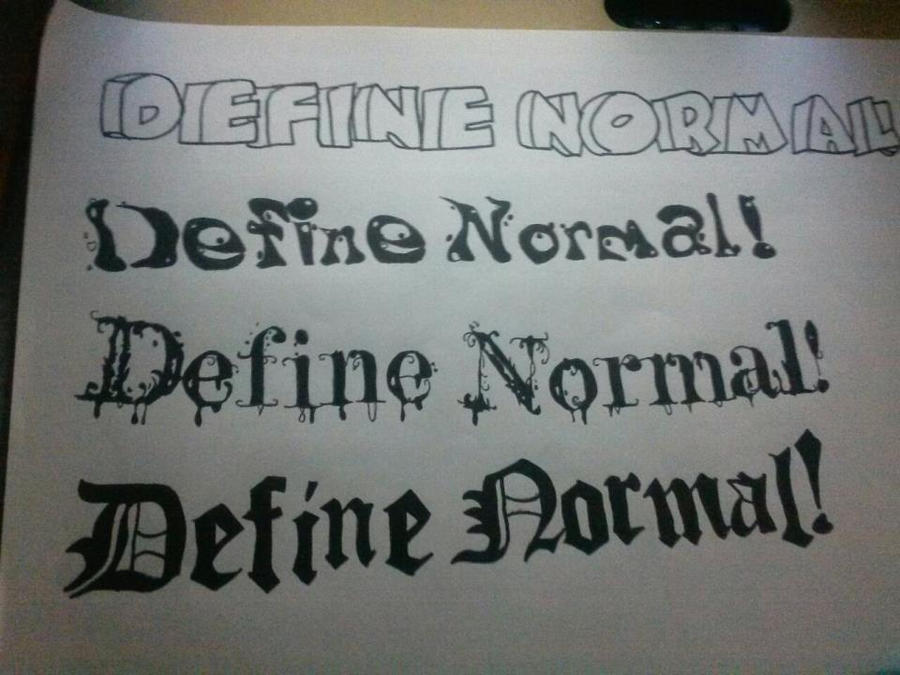 DEFINE NORMAL
Define Normal!
Define Normal!
Define Normal!